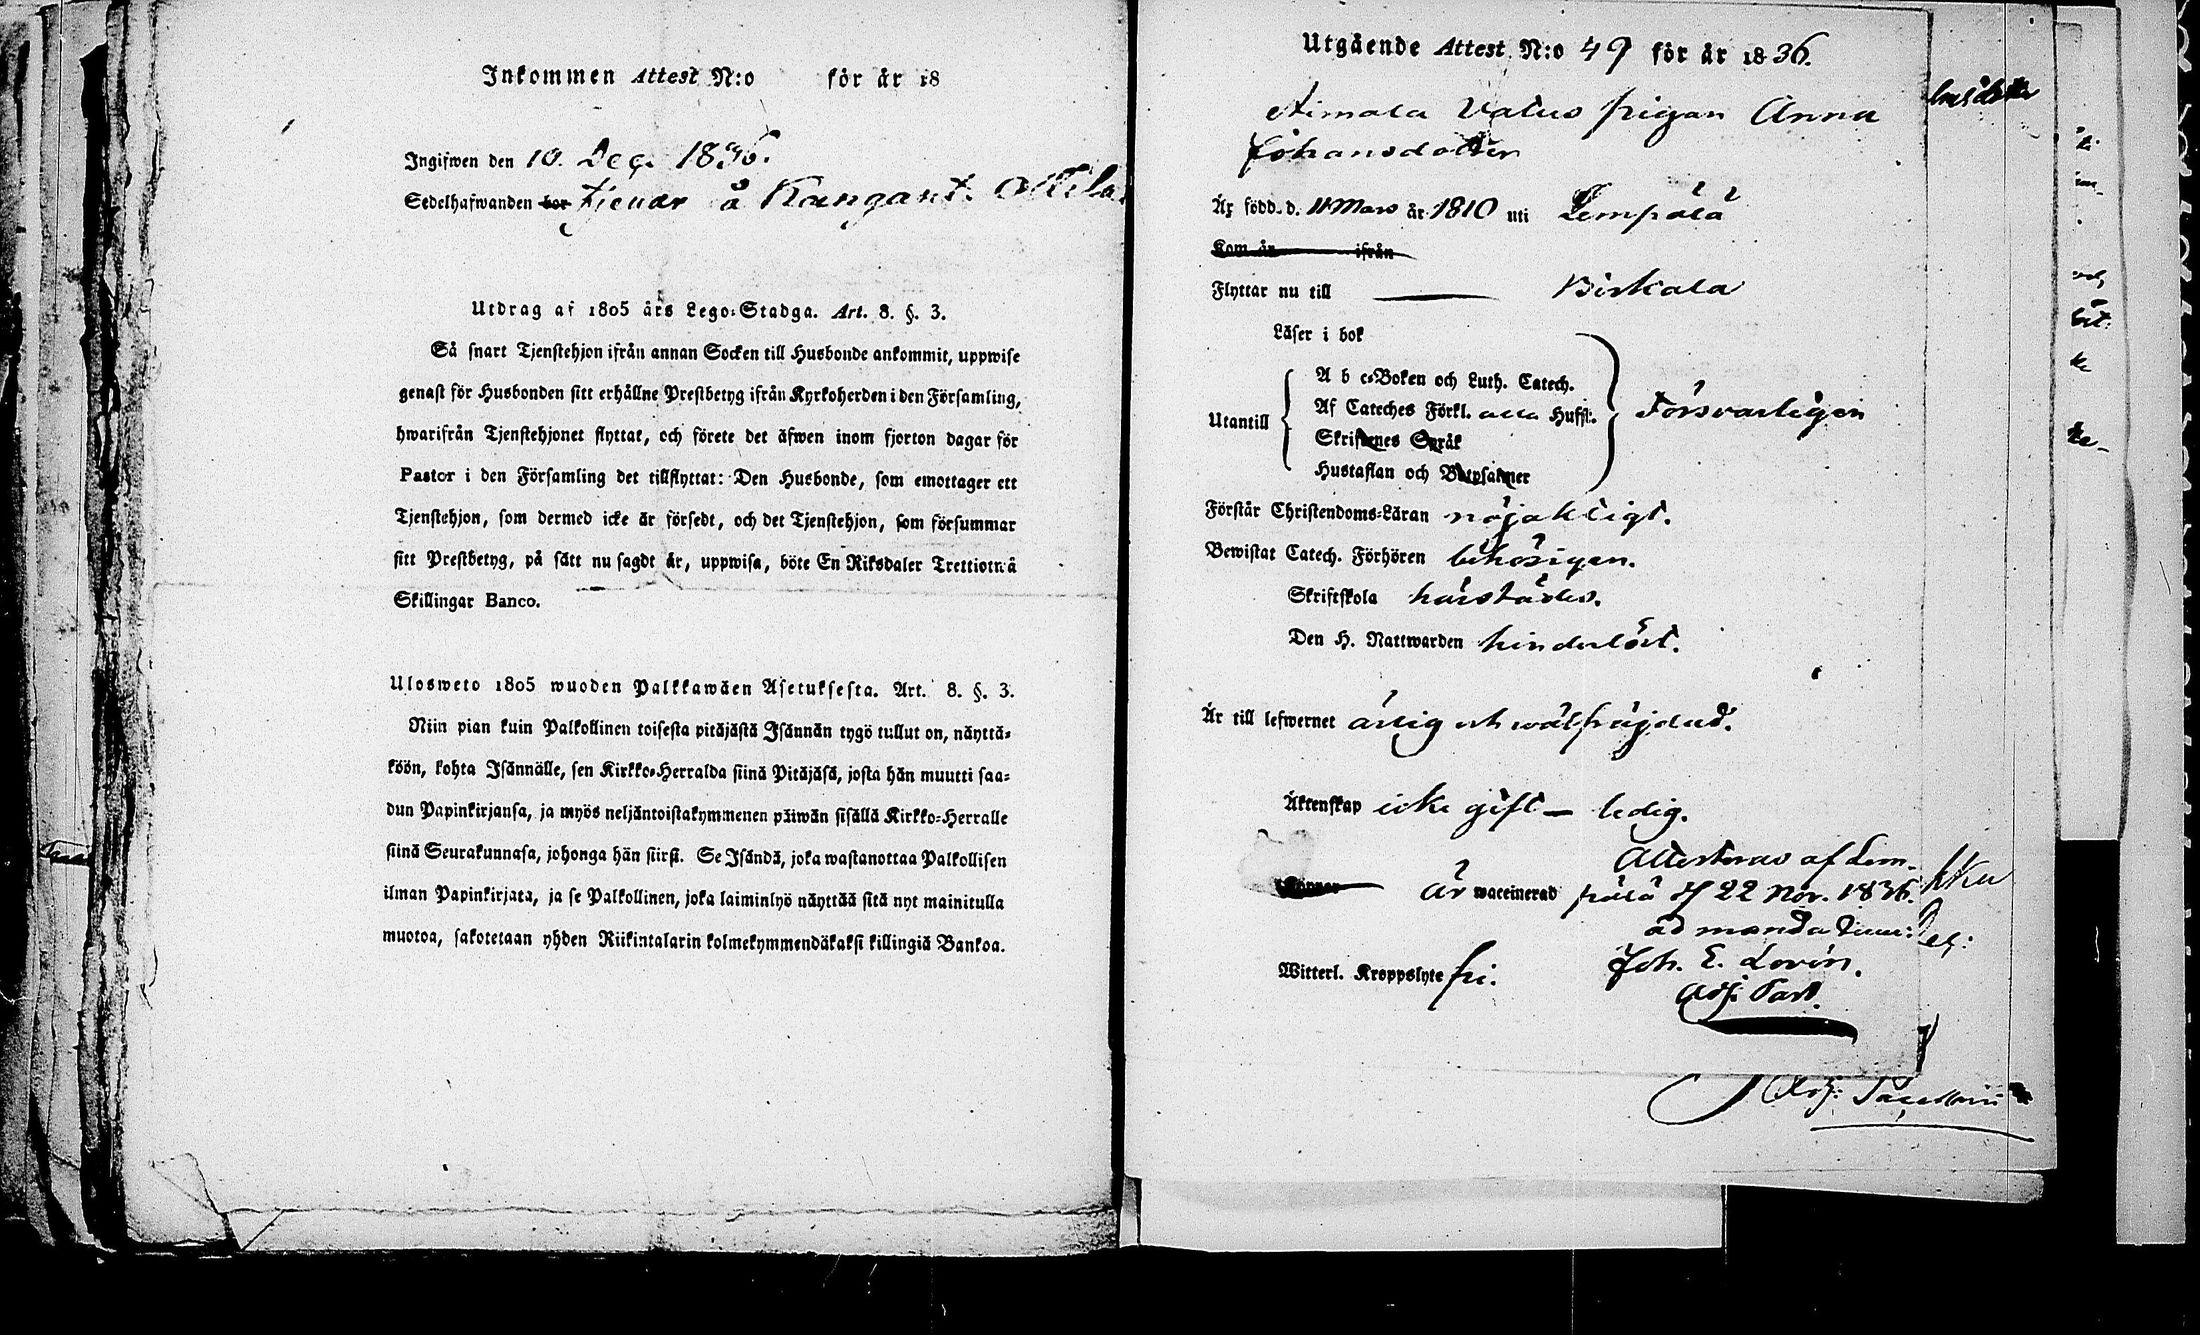 Inkommen Attest N:o för år 18
Ingifwen den 10. Dec. 1836.
Sedelhafwanden bor tjenar å Kangant.
Utdrag af 1805 års Lego-Stadga. Art. 8. §. 3.
Så snart Tjenstehjon ifrån annan Socken till Husbonde ankommit, uppwise
genast för Husbonden sitt erhållne Prestbetyg ifrån Kyrkoherden i den Församling,
hwarifrån Tjenstehjonet flyttat, och förete det äfwen inom fjorton dagar för
Pastor i den Församling det tillflyttat: Den Husbonde, som emottager ett
Tjenstehjon, som dermed icke är försedt, och det Tjenstehjon, som försummar
sitt Prestbetyg, på sätt nu sagdt är, uppwisa, böte En Riksdaler Trettiotwå
Skillingar Banco.
Ulosweto 1805 wuoden Palkkawäen Asetuksesta. Art. 8. §. 3.
Niin pian kuin Palkollinen toisesta pitäjästä Isännän tygö tullut on, näyttä-
köön, kohta Isännälle, sen Kirkko-Herralda siinä Pitäjäsä, josta hän muutti saa-
dun Papinkirjansa, ja myös neljäntoistakymmenen päiwän sisällä Kirkko-Herralle
siinä Seurakunnasa, johonga hän siirsi. Se Isändä, joka wastanottaa Palkollisen
ilman Papinkirjata, ja se Palkollinen, joka laiminlyö näyttää sitä nyt mainitulla
muotoa, sakotetaan yhden Riikintalarin kolmekymmendäkaksi killingiä Bankoa.
Utgående Attest N:o 49 för år 1836.
Aimala Valus pigan Anna
Johansdotter
Är född. d. 11 Mars år 1810 uti Lempälä
Kom år ifrån
Flyttar nu till Birkala
Läser i bok
A b c-Boken och Luth. Catech.
Utantill Af Cateches Förkl. alla Huffst. Försvarligen
Skriftenes Språk
Hustaflan och Botpsalmer
Förstår Christendoms-Läran nöjaktigt.
Bewistat Catech. Förhören behörigen.
Skriftskola härstädes.
Den H. Nattwarden hinderlöst.
Är till lefwernet ärlig och wälfrägdad.
Äktenskap icke gift – ledig.
Attesteras af Lem-
Är waccinerad pälä d 22 Nov. 1836.
ad mandatum:
Witterl. Kroppslyte fri. Joh. E. Lovén.
Adj. Past.
Adj: